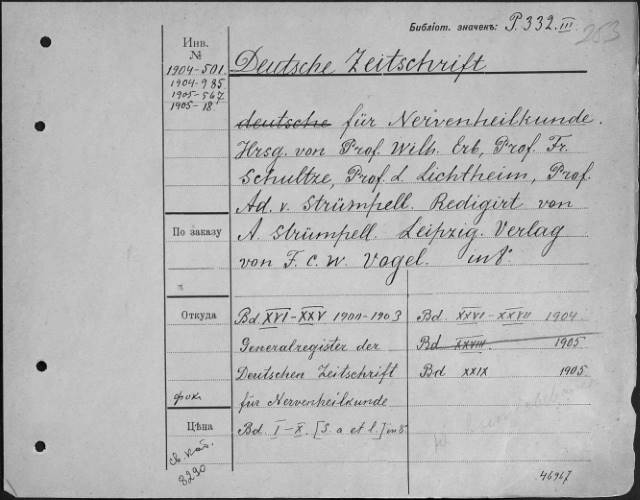 Библіот. значекъ: P. 332. III 253
Инв. №
1904-501.
1904-985
1905-567
1905-18.
Deutsche Zeitschrift
deutsche für Nervenheilkunde.
Hrsg. von Prof. Wilh. Erb, Prof. Fr.
Schultze, Prof. L Lichtheim, Prof.
Ad. v. Strümpell. Redigirt von
По заказу
A. Strümpell. Leipzig. Verlag
von F. C. W. Vogel. in 8.
Откуда
Bd XVI-XXV 1900-1903
Generalregister der
Deutschen Zeitschrift
für Nervenheilkunde
Bd. I-X. [S. a et l.] in 8
Bd XXVI-XXVII 1904
Bd XXVIII 1905
Bd XXIX 1905
фок.
Цѣна
св. кат.
8290
46967